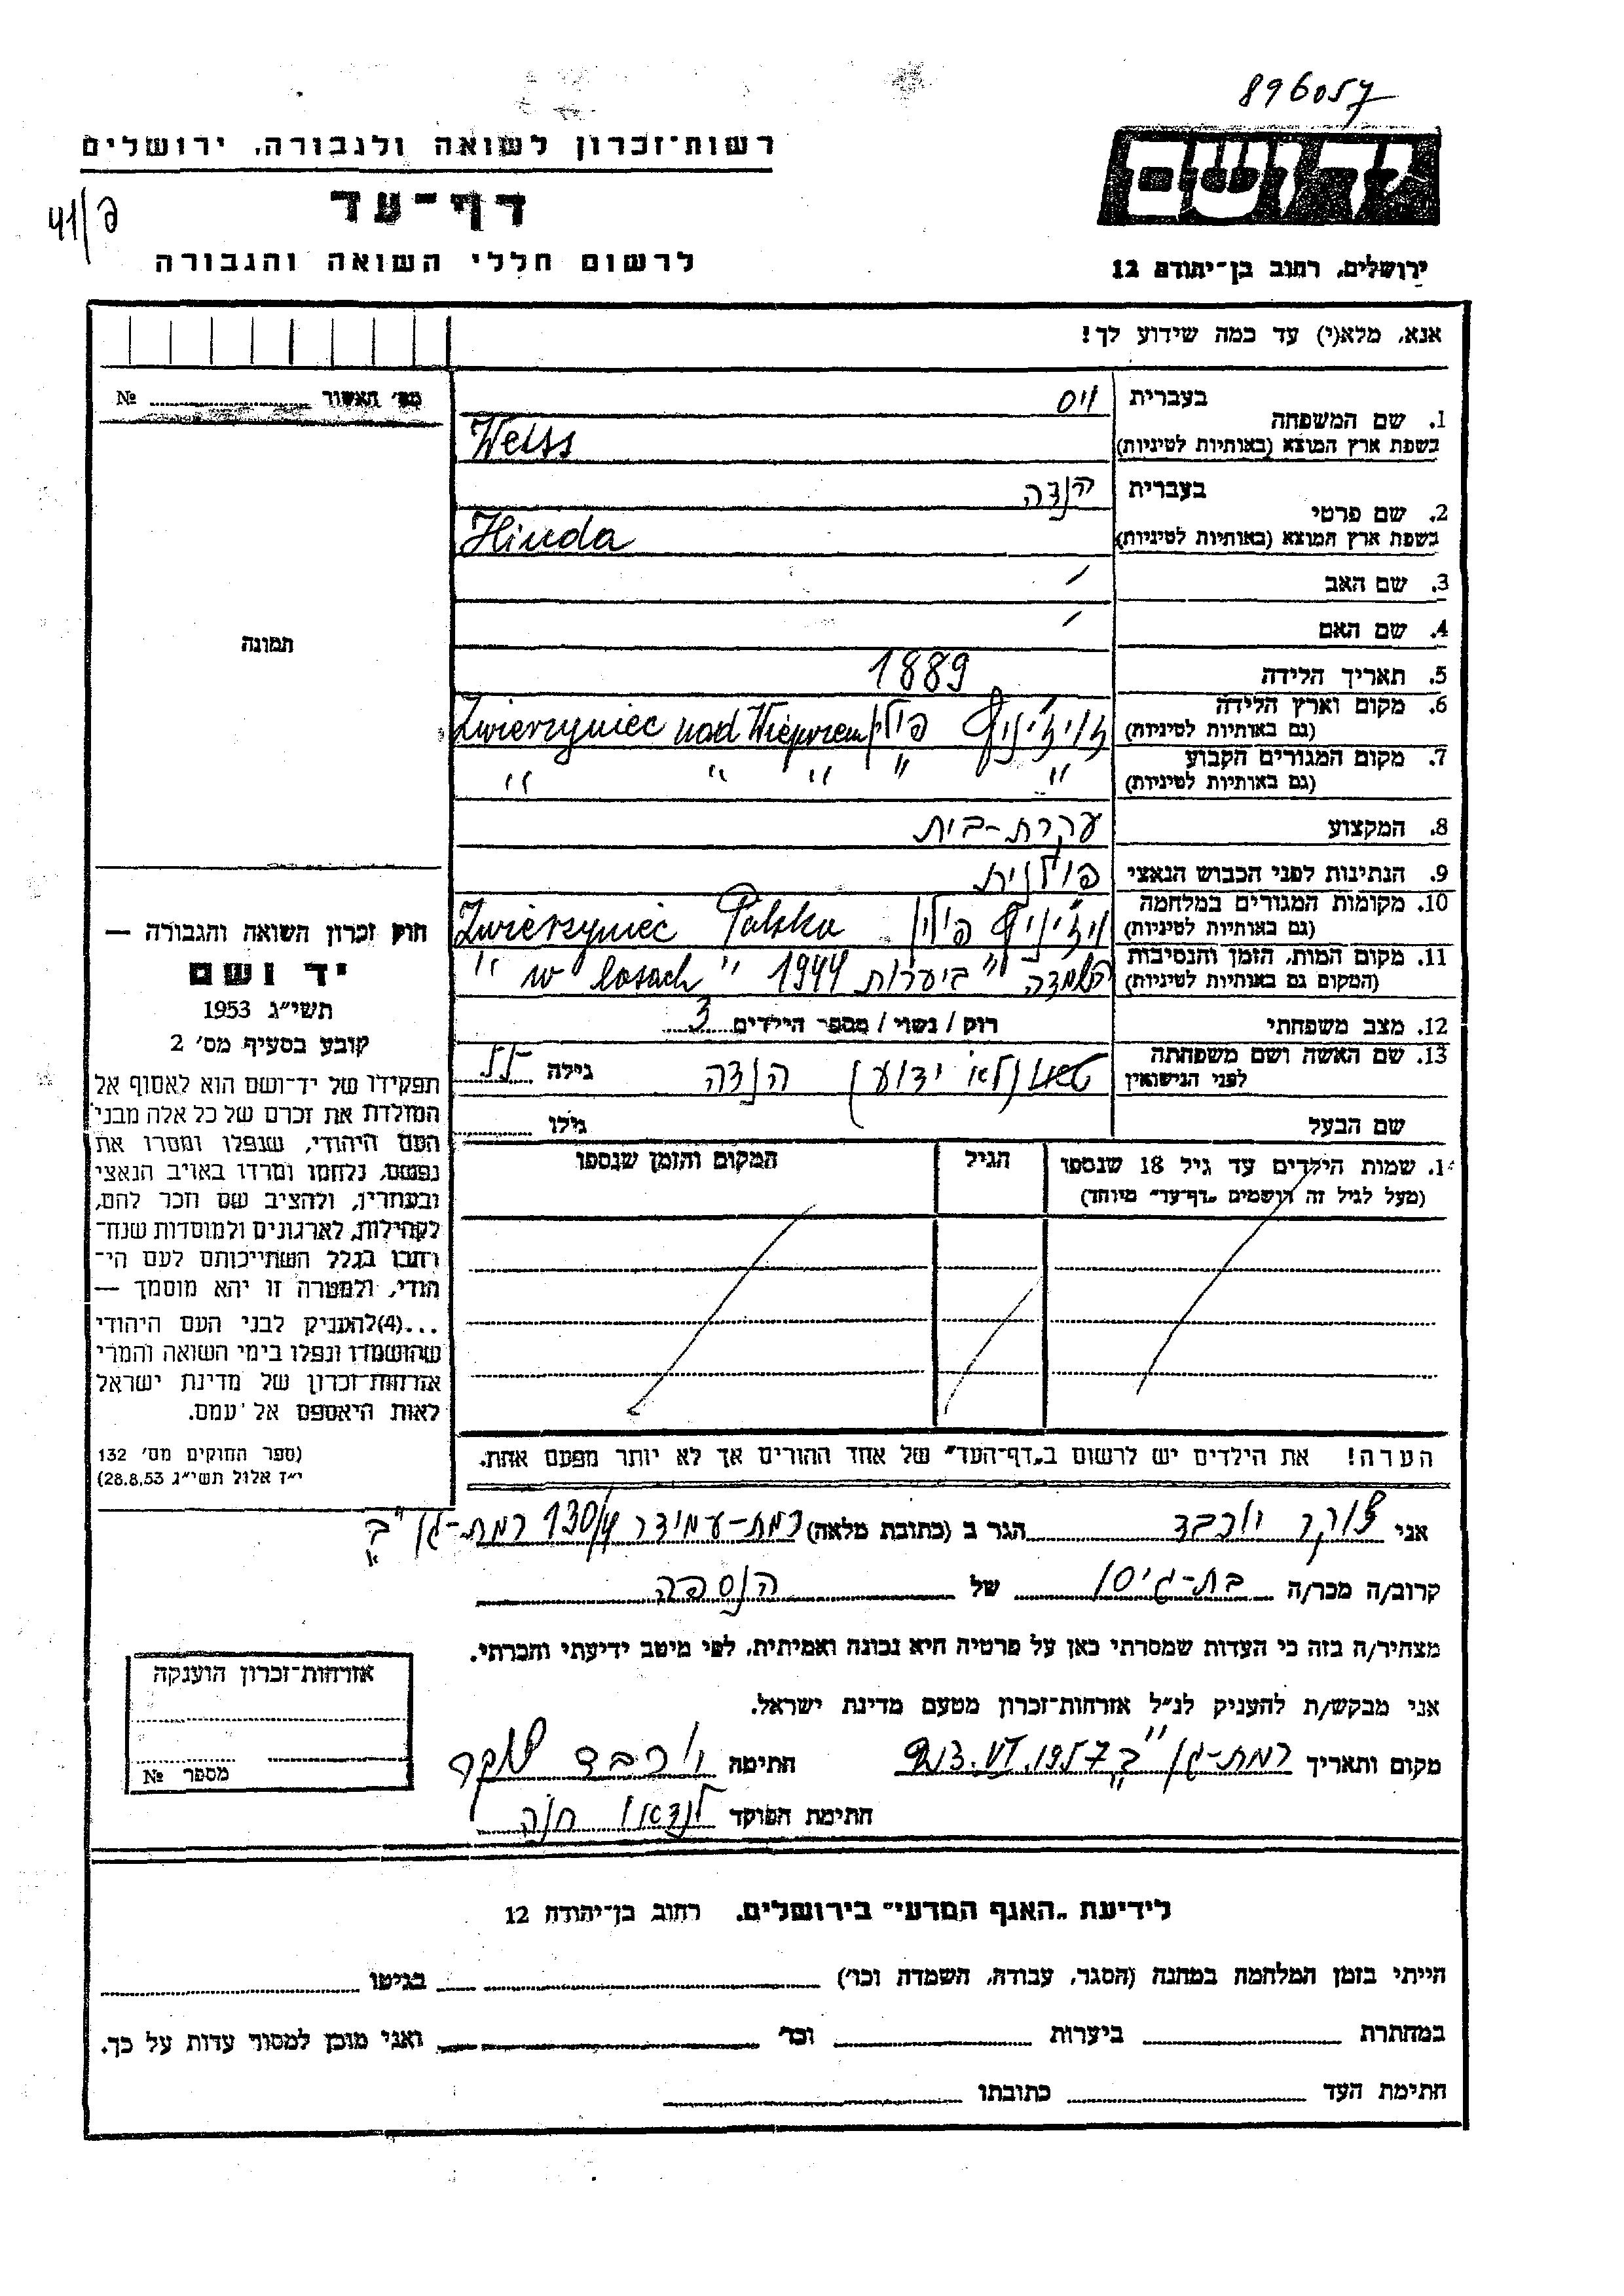 896057
רשות־זכרון לשואה ולגבורה, ירושלים
דף־עד
לרשום חללי השואה והגבורה
ירושלים, רחוב בן־יהודה 12
אנא, מלא(י) עד כמה שידוע לך!
מס׳ האשור № 
1. שם המשפחה בעברית וייס
בשפת ארץ המוצא (באותיות לטיניות) Weiss
2. שם פרטי בעברית הנדה
בשפת ארץ המוצא (באותיות לטיניות) Hinda
3. שם האב /
4. שם האם /
תמונה
5. תאריך הלידה 1889
6. מקום וארץ הלידה (גם באותיות לטיניות) פולין Zwierzyniec nad Wieprzem
7. מקום המגורים הקבוע (גם באותיות לטיניות) " " " " "
8. המקצוע עקרת-בית
9. הנתינות לפני הכבוש הנאצי פולנית
10. מקומות המגורים במלחמה (גם באותיות לטיניות) פולין Zwierzyniec Polska
11. מקום המות, הזמן והנסיבות (המקום גם באותיות לטיניות) הושמדה "ביערות" 1944 "w lasach"
12. מצב משפחתי רוק / נשוי / מספר הילדים 3
13. שם האשה ושם משפחתה לפני הנישואין לא ידוע הנדה גילה 55
שם הבעל גילו
14. שמות הילדים עד גיל 18 שנספו (מעל לגיל זה רושמים „דף־עד״ מיוחד) הגיל המקום והזמן שנספו
חוק זכרון השואה והגבורה —
יד ושם
תשי״ג 1953
קובע בסעיף מס׳ 2
תפקידו של יד־ושם הוא לאסוף אל
המולדת את זכרם של כל אלה מבני
העם היהודי, שנפלו ומסרו את
נפשם, נלחמו ומרדו באויב הנאצי
ובעוזריו, ולהציב שם וזכר להם,
לקהילות, לארגונים ולמוסדות שנח־
רבו בגלל השתייכותם לעם הי־
הודי, ולמטרה זו יהא מוסמך —
...(4)להעניק לבני העם היהודי
שהושמדו ונפלו בימי השואה והמרי
אזרחות־זכרון של מדינת ישראל
לאות היאספם אל עמם.
(ספר החוקים מס׳ 132
י״ז אלול תשי״ג 28.8.53)
הערה! את הילדים יש לרשום ב„דף־העד״ של אחד ההורים אך לא יותר מפעם אחת.
אני צוקר יוכבד הגר ב (כתובת מלאה) רמת-עמידר 130/4 רמת-גן
קרוב/ה מכר/ה בת-גיסו של הנספה
מצהיר/ה בזה כי העדות שמסרתי כאן על פרטיה היא נכונה ואמיתית, לפי מיטב ידיעתי והכרתי.
אני מבקש/ת להעניק לנ״ל אזרחות־זכרון מטעם מדינת ישראל.
מקום ותאריך רמת-גן 3.VI.1957 חתימה יוכבד צוקר
חתימת הפוקד לנדאו חנה
אזרחות־זכרון הוענקה
מספר №
לידיעת „האגף המדעי״ בירושלים, רחוב בן־יהודה 12
הייתי בזמן המלחמה במחנה (הסגר, עבודה, השמדה וכו׳) בגיטו
במחתרת ביערות וכו׳ ואני מוכן למסור עדות על כך.
חתימת העד כתובתו